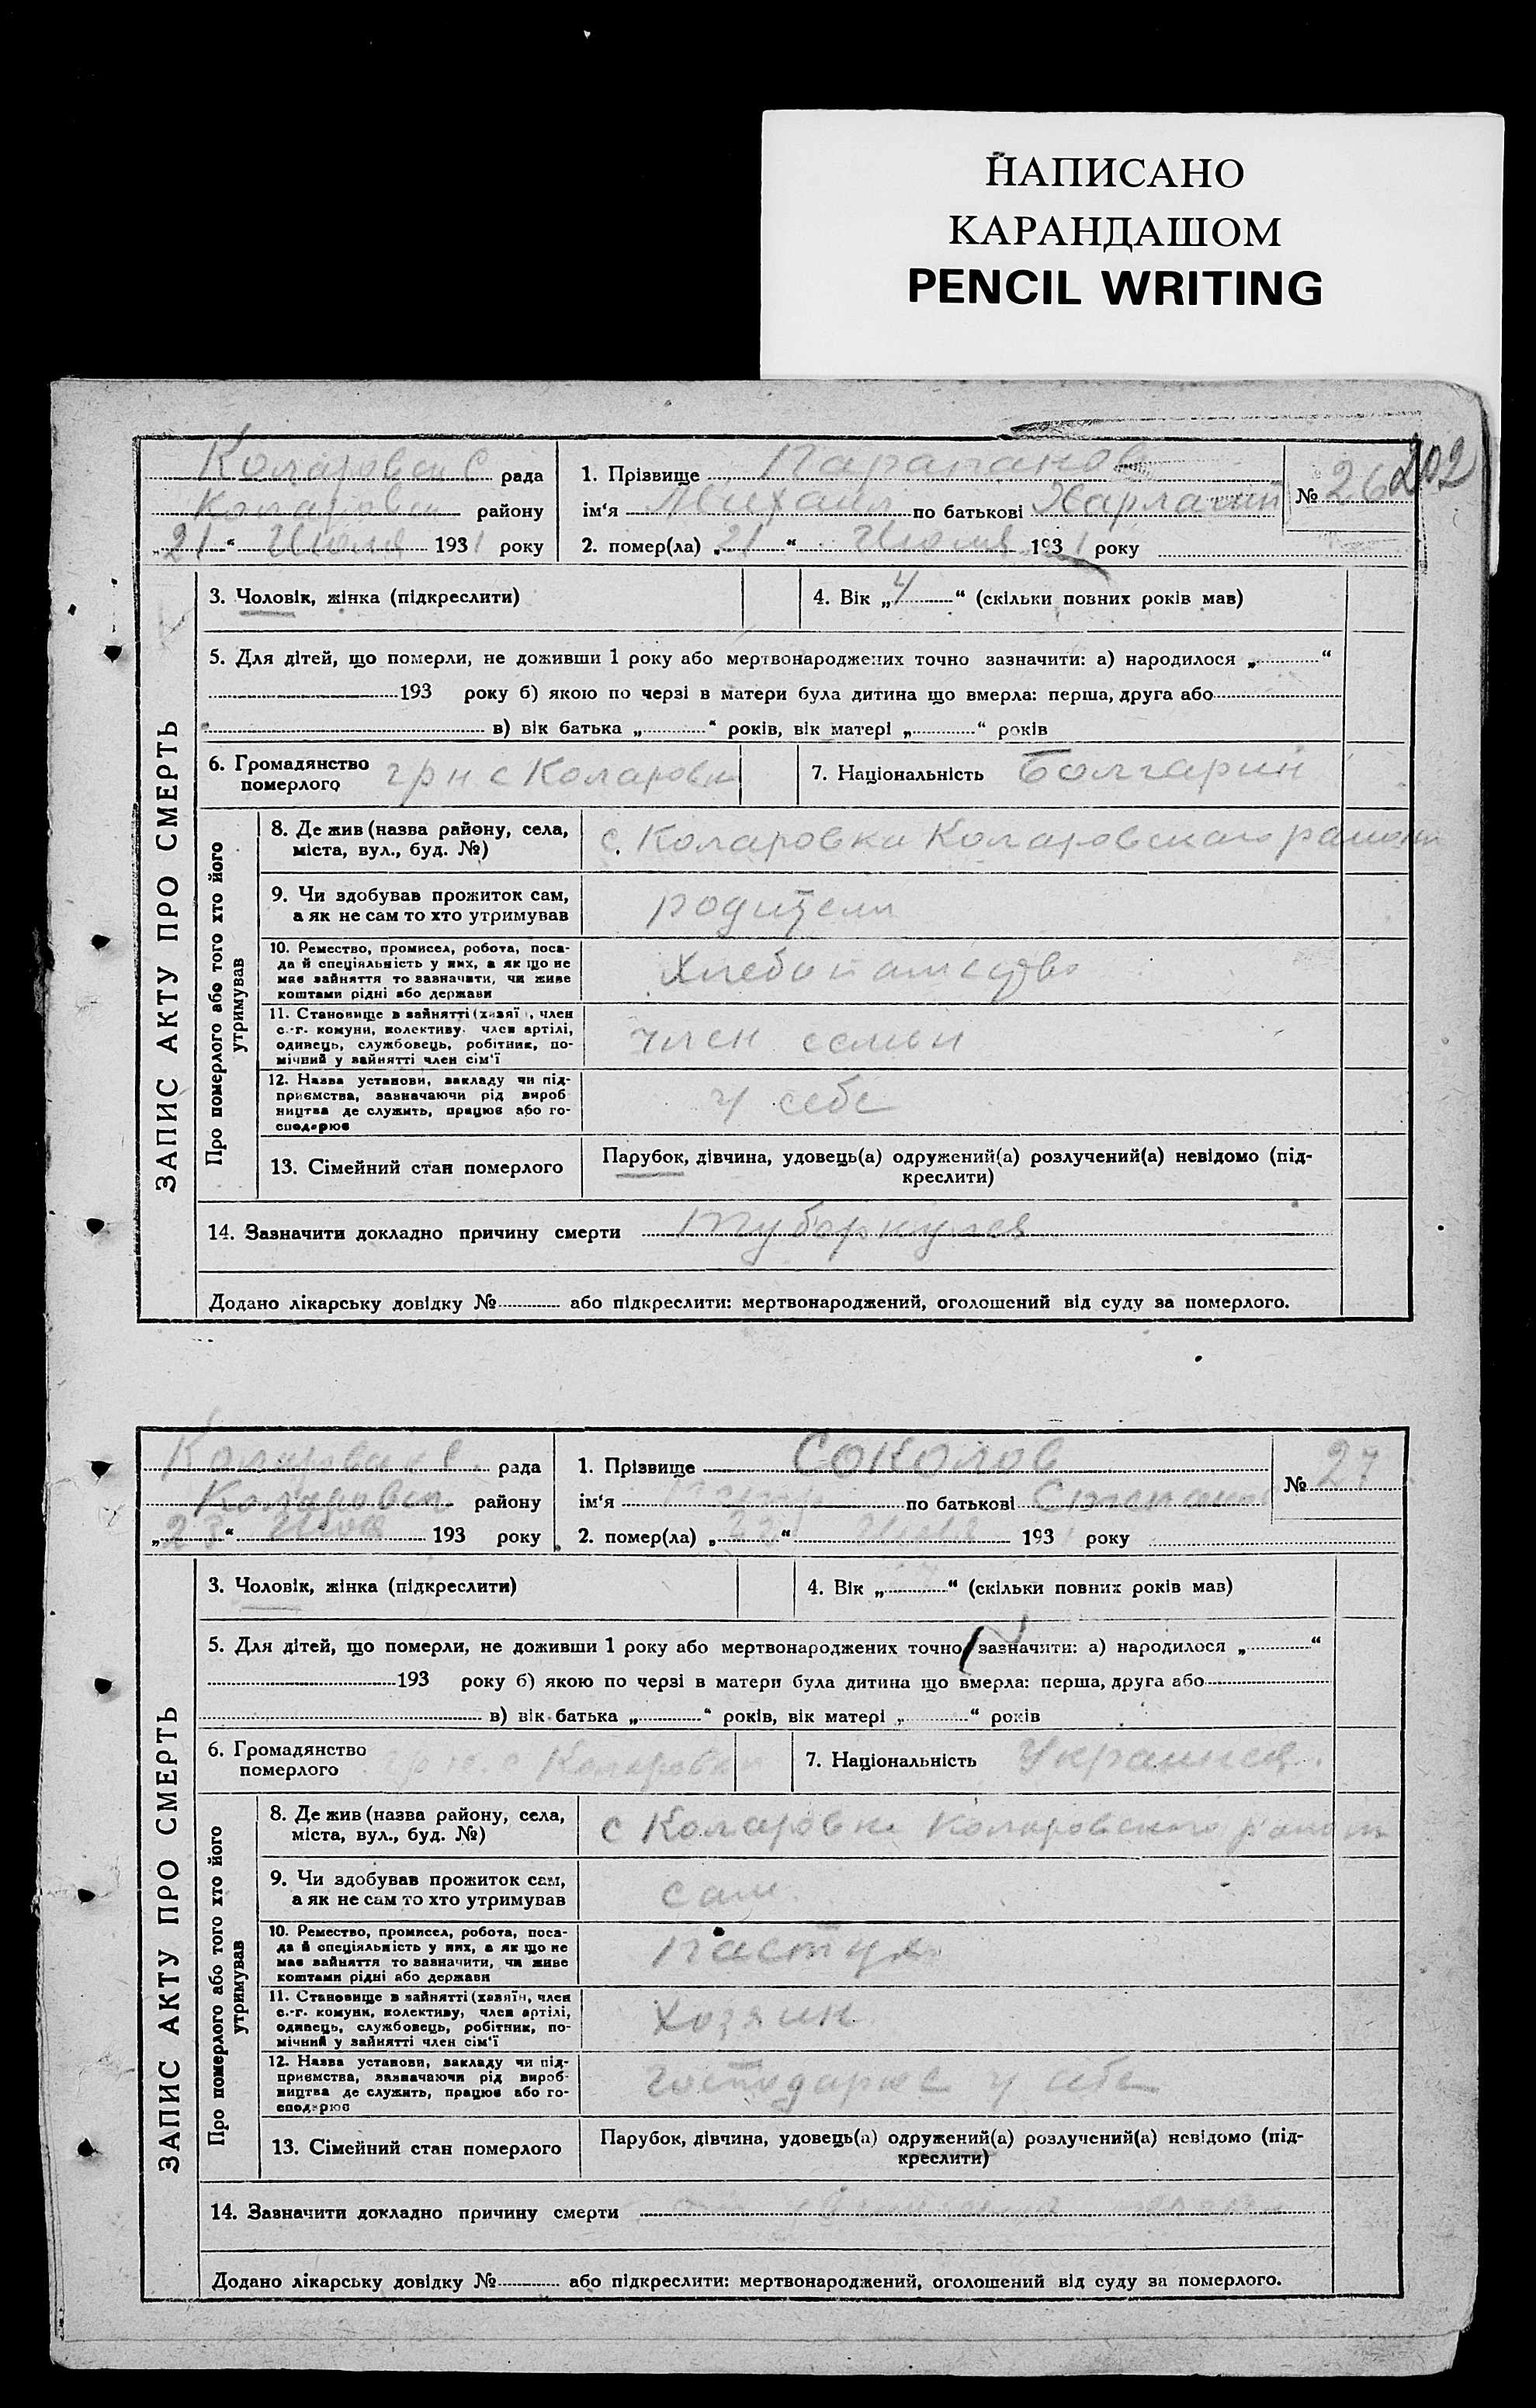 НАПИСАНО
КАРАНДАШОМ
PENCIL WRITING
202
Коларовск С рада
Коларовск району
„21“ Июля 1931 року
1. Прізвище Парапанов
ім‘я Михаил по батькові Харлампий
2. помер(ла) „21“ Июля 1931 року
№ 26
ЗАПИС АКТУ ПРО СМЕРТЬ
3. Чоловік, жінка (підкреслити)
4. Вік „4“ (скільки повних років мав)
5. Для дітей, що померли, не доживши 1 року або мертвонароджених точно зазначити: а) народилося „ “
193 року б) якою по черзі в матери була дитина що вмерла: перша, друга або
в) вік батька „ “ років, вік матері „ “ років
6. Громадянство
померлого
грн с Коларовки
7. Національність Болгарин
Про померлого або того хто його
утримував
8. Де жив (назва району, села,
міста, вул., буд. №)
с. Коларовка Коларовского района
9. Чи здобував прожиток сам,
а як не сам то хто утримував
родители
10. Ремество, промисел, робота, поса-
да й спеціяльність у них, а як що не
має зайняття то зазначити, чи живе
коштами рідні або держави
Хлебопашество
11. Становище в зайнятті (хазяї , член
с.-г. комуни, колективу, член артілі,
одинець, службовець, робітник, по-
мічний у зайнятті член сім‘ї
член семьи
12. Назва установи, закладу чи під-
приємства, зазначаючи рід вироб
ництва де служить, працює або го-
сподарює
у себе
13. Сімейний стан померлого
Парубок, дівчина, удовець(а) одружений(а) розлучений(а) невідомо (під-
креслити)
14. Зазначити докладно причину смерти Туберкулез
Додано лікарську довідку № або підкреслити: мертвонароджений, оголошений від суду за померлого.
Коларовск С. рада
Коларовск району
„23“ Июля 193 року
1. Прізвище Соколов
ім‘я Петр по батькові Степанов
2. помер(ла) „22“ Июля 1931 року
№ 27
ЗАПИС АКТУ ПРО СМЕРТЬ
3. Чоловік, жінка (підкреслити)
4. Вік „ “ (скільки повних років мав)
5. Для дітей, що померли, не доживши 1 року або мертвонароджених точно зазначити: а) народилося „ “
193 року б) якою по черзі в матери була дитина що вмерла: перша, друга або
в) вік батька „ “ років, вік матері „ “ років
6. Громадянство
померлого
грн. с Коларовки
7. Національність Украинец.
Про померлого або того хто його
утримував
8. Де жив (назва району, села,
міста, вул., буд. №)
с Коларовка Коларовского района
9. Чи здобував прожиток сам,
а як не сам то хто утримував
сам
10. Ремество, промисел, робота, поса-
да й спеціяльність у них, а як що не
має зайняття то зазначити, чи живе
коштами рідні або держави
пастух
11. Становище в зайнятті (хазяїн, член
с.-г. комуни, колективу, член артілі,
одинець, службовець, робітник, по-
мічний у зайнятті член сім‘ї
хозяин
12. Назва установи, закладу чи під-
приємства, зазначаючи рід вироб-
ництва де служить, працює або го-
сподарює
господарює у себе
13. Сімейний стан померлого
Парубок, дівчина, удовець(а) одружений(а) розлучений(а) невідомо (під-
креслити)
14. Зазначити докладно причину смерти
Додано лікарську довідку № або підкреслити: мертвонароджений, оголошений від суду за померлого.